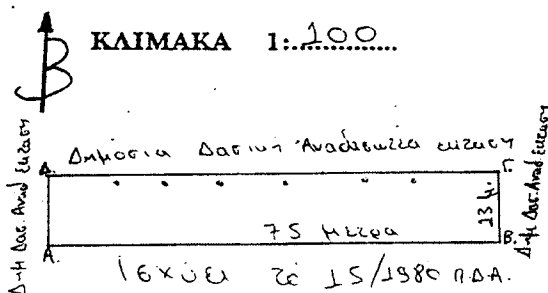 Β
ΚΛΙΜΑΚΑ 1:100
Δημόσια Δασική Αναδασωτέα έκταση
Δημ. Δασ. Αναδ. έκταση
Δ.
Γ.
13 μ.
75 μέτρα
Α.
Β.
Δημ. Δασ. Αναδ. έκταση
Ισχύει τό 15/1980 Π.Δ/Α.